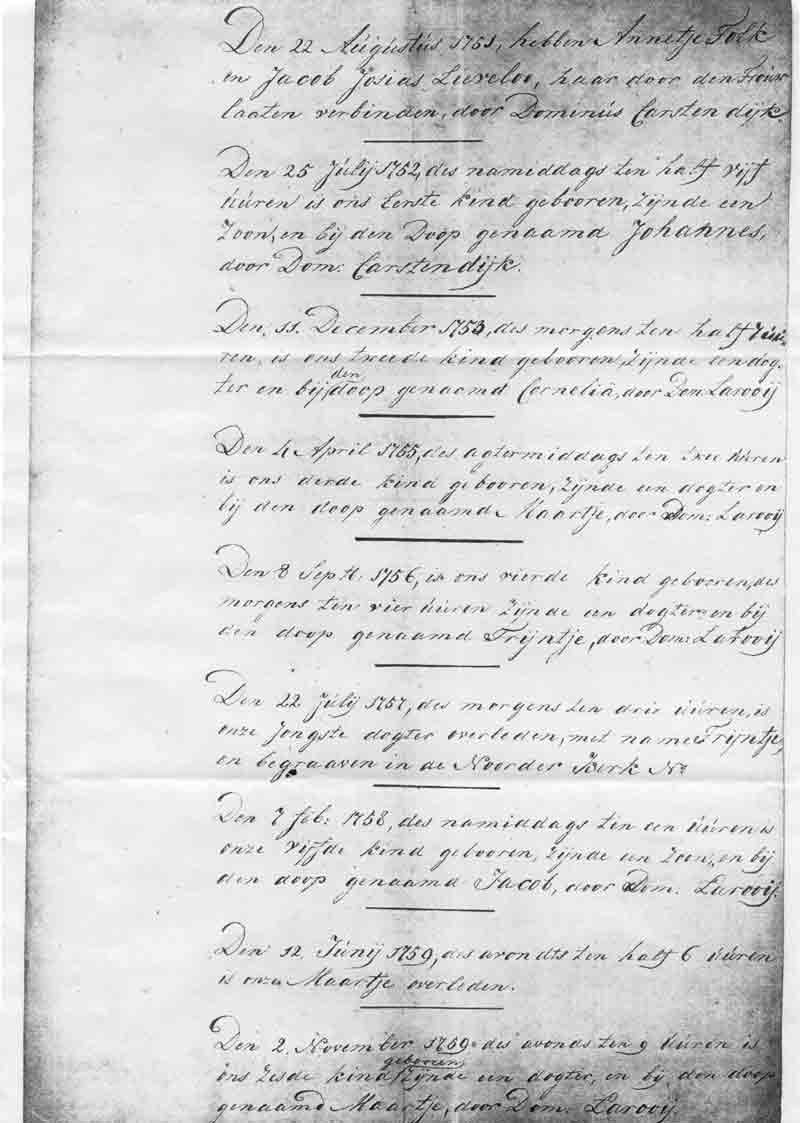 Den 22 Augustus 1751, hebben Annetje Folk
en Jacob Josias Luveloo, haar door den Trouw
laaten verbinden, door Dominus Carstendijk.
Den 25 Julij 1752, des namiddags ten half vijf
uuren is ons Eerste kind gebooren, Zijnde een
Zoon, en bij den Doop genaamd Johannes,
door Dom: Carstendijk.
Den 11 December 1753, des morgens ten half
ren, is ons tweede kind gebooren, Zijnde een dog-
ter en bij den doop genaamd Cornelia, door Dom: Larooij
Den 4 April 1755, des agtermiddags ten twee uuren
is ons derde kind gebooren, Zijnde een dogter en
bij den doop genaamd Maartje, door Dom: Larooij
Den 8 Sept: 1756, is ons vierde kind gebooren, des
morgens ten vier uuren Zijnde een dogter en bij
den doop genaamd Trijntje, door Dom: Larooij
Den 22 Julij 1757, des morgens ten drie uuren, is
onze Jongste dogter overleden, met name Trijntje,
en begraaven in de Noorder Kerk No
Den 7 feb: 1758, des namiddags ten een uuren is
onze vijfde kind gebooren, Zijnde een Zoon, en bij
den doop genaamd Jacob, door Dom: Larooij.
Den 12 Junij 1759, des avondts ten half 6 uuren
is onze Maartje overleden.
Den 2 November 1759 des avonds ten 9 uuren is
ons Zesde kind gebooren Zijnde een dogter, en bij den doop
genaamd Maartje, door Dom: Larooij.